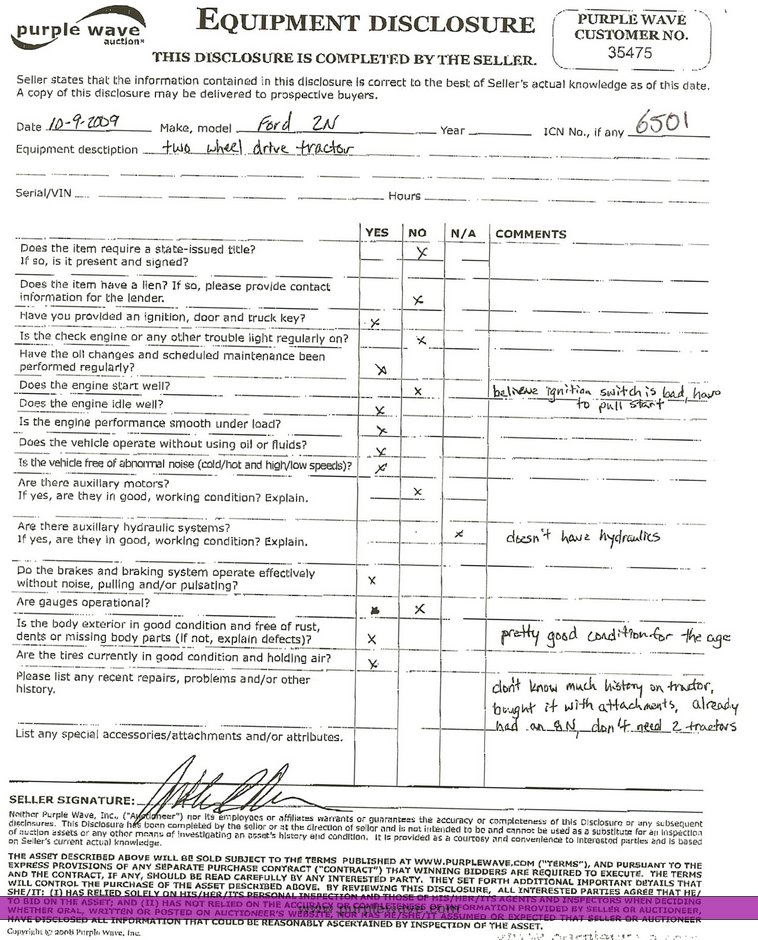 purple wave
auction
EQUIPMENT DISCLOSURE
PURPLE WAVE
CUSTOMER NO.
35475
THIS DISCLOSURE IS COMPLETED BY THE SELLER.
Seller states that the information contained in this disclosure is correct to the best of Seller's actual knowledge as of this date.
A copy of this disclosure may be delivered to prospective buyers.
Date 10-9-2009 Make, model Ford 2N Year ICN No., if any 6501
Equipment desctiption two wheel drive tractor
Serial/VIN Hours
YES NO N/A COMMENTS
Does the item require a state-issued title? x
If so, is it present and signed?
Does the item have a lien? If so, please provide contact
information for the lender. x
Have you provided an ignition, door and truck key? x
Is the check engine or any other trouble light regularly on? x
Have the oil changes and scheduled maintenance been
performed regularly? x
Does the engine start well? x believe ignition switch is bad, have
to pull start
Does the engine idle well? x
Is the engine performance smooth under load? x
Does the vehicle operate without using oil or fluids? x
Is the vehicle free of abnormal noise (cold/hot and high/low speeds)? x
Are there auxillary motors? x
If yes, are they in good, working condition? Explain.
Are there auxillary hydraulic systems? x doesn't have hydraulics
If yes, are they in good, working condition? Explain.
Do the brakes and braking system operate effectively
without noise, pulling and/or pulsating? x
Are gauges operational? x
Is the body exterior in good condition and free of rust,
dents or missing body parts (if not, explain defects)? x pretty good condition for the age
Are the tires currently in good condition and holding air? x
Please list any recent repairs, problems and/or other
history.
don't know much history on tractor,
bought it with attachments, already
had an 8N, don't need 2 tractors
List any special accessories/attachments and/or attributes.
SELLER SIGNATURE:
Neither Purple Wave, Inc., ("Auctioneer") nor its employees or affiliates warrants or guarantees the accuracy or completeness of this Disclosure or any subsequent
disclosures. This Disclosure has been completed by the seller or at the direction of seller and is not intended to be and cannot be used as a substitute for an inspection
of auction assets or any other means of investigating an asset's history and condition. It is provided as a courtesy and convenience to interested parties and is based
on Seller's current actual knowledge.
THE ASSET DESCRIBED ABOVE WILL BE SOLD SUBJECT TO THE TERMS PUBLISHED AT WWW.PURPLEWAVE.COM ("TERMS"), AND PURSUANT TO THE
EXPRESS PROVISIONS OF ANY SEPARATE PURCHASE CONTRACT ("CONTRACT") THAT WINNING BIDDERS ARE REQUIRED TO EXECUTE. THE TERMS
AND THE CONTRACT, IF ANY, SHOULD BE READ CAREFULLY BY ANY INTERESTED PARTY. THEY SET FORTH ADDITIONAL IMPORTANT DETAILS THAT
WILL CONTROL THE PURCHASE OF THE ASSET DESCRIBED ABOVE. BY REVIEWING THIS DISCLOSURE, ALL INTERESTED PARTIES AGREE THAT HE/
SHE/IT: (I) HAS RELIED SOLELY ON HIS/HER/ITS PERSONAL INSPECTION AND THOSE OF HIS/HER/ITS AGENTS AND INSPECTORS WHEN DECIDING
TO BID ON THE ASSET; AND (II) HAS NOT RELIED ON THE ACCURACY OR COMPLETENESS OF INFORMATION PROVIDED BY SELLER OR AUCTIONEER,
WHETHER ORAL, WRITTEN OR POSTED ON AUCTIONEER'S WEBSITE, NOR HAS HE/SHE/IT ASSUMED OR EXPECTED THAT SELLER OR AUCTIONEER
HAVE DISCLOSED ALL INFORMATION THAT COULD BE REASONABLY ASCERTAINED BY INSPECTION OF THE ASSET.
Copyright © 2008 Purple Wave, Inc.